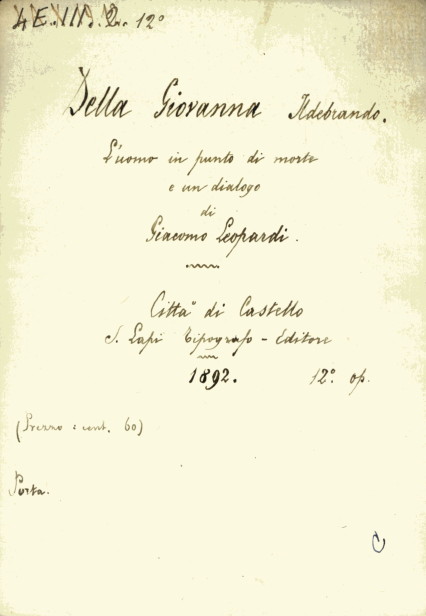 4.E.VII. 12°
Della Giovanna Ildebrando.
L'uomo in punto di morte
e un dialogo
di
Giacomo Leopardi.
Città di Castello
S. Lapi Tipografo - Editore
1892. 12° op.
(Prezzo: cent. 60)
Porta.
C